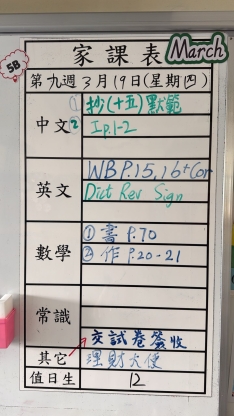 家課表
March
5B
第九週3月19日(星期四)
中文
① 抄(十五)默範
② Ip.1-2
英文
WB P.15,16+Cor
Dict Rev Sign
數學
① 書 P.70
② 作 P.20-21
常識
交試卷簽收
其它
理財大使
值日生
12